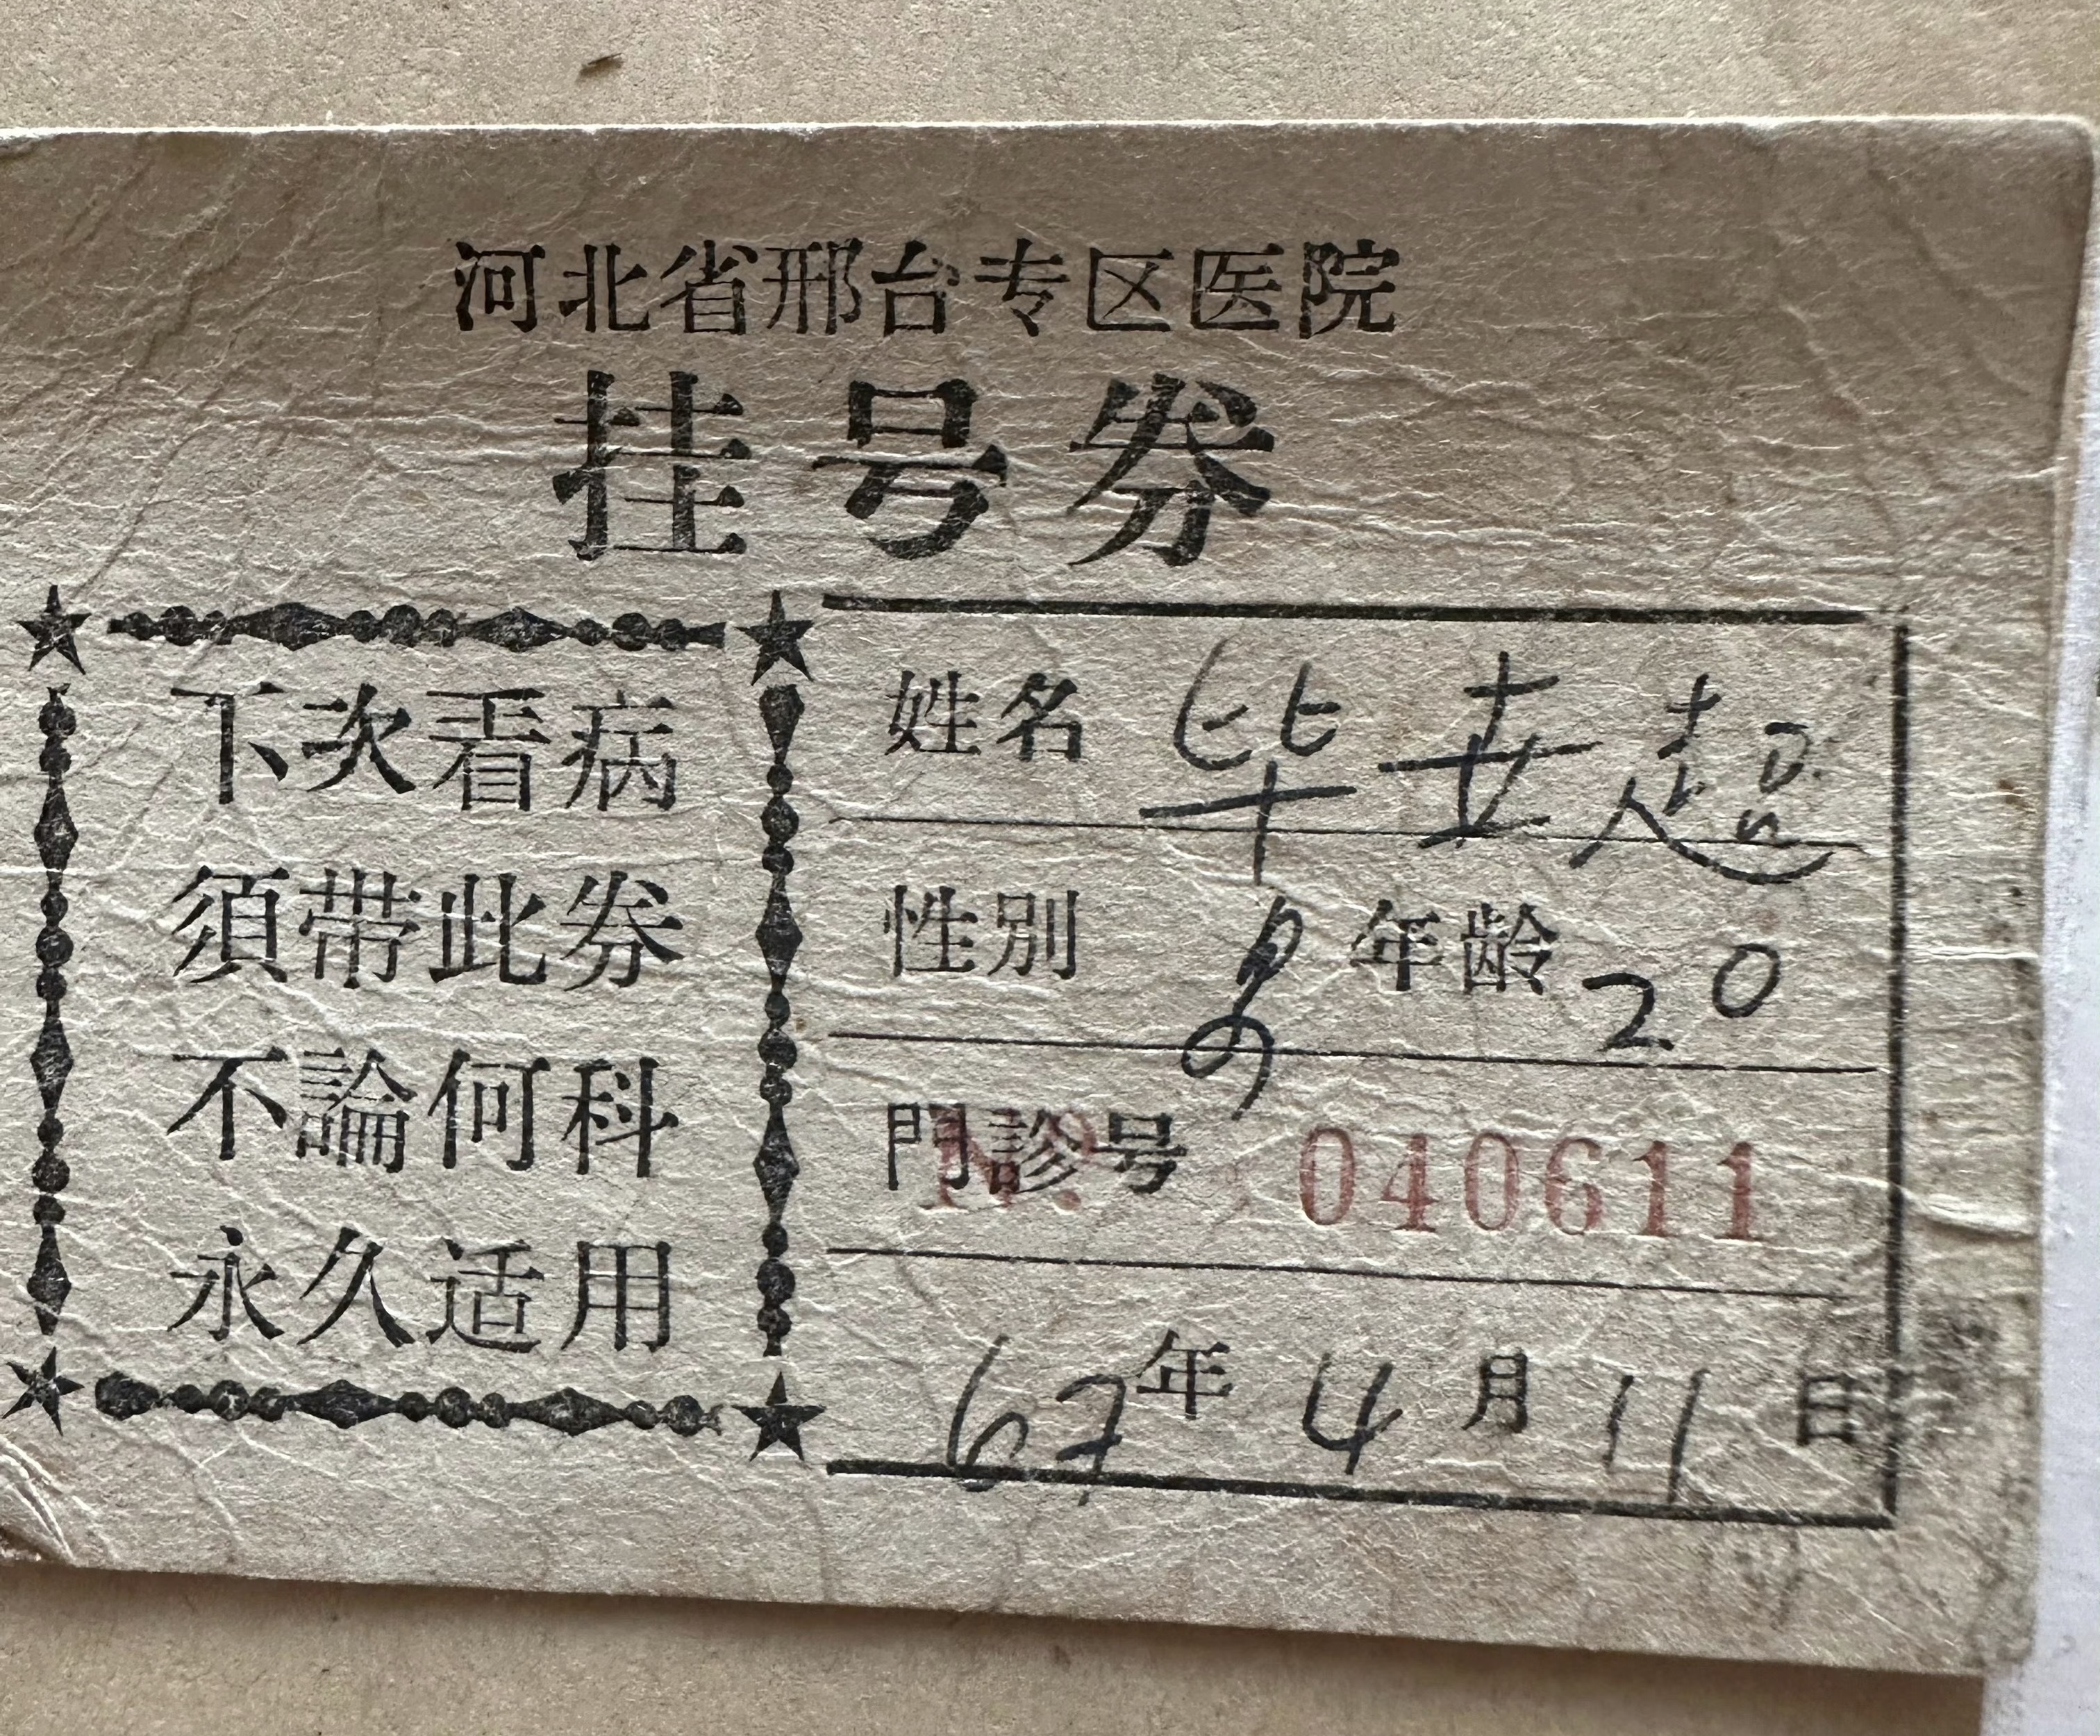 河北省邢台专区医院
挂号券
下次看病
須带此券
不論何科
永久适用
姓名 毕世超
性别 男 年龄 20
門診号 № 040611
67年4月11日